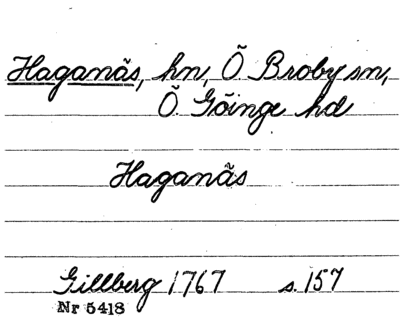 Haganäs, hn, Ö Broby sn,
Ö Göinge hd
Haganäs
Gillberg 1767 s. 157
Nr 5418